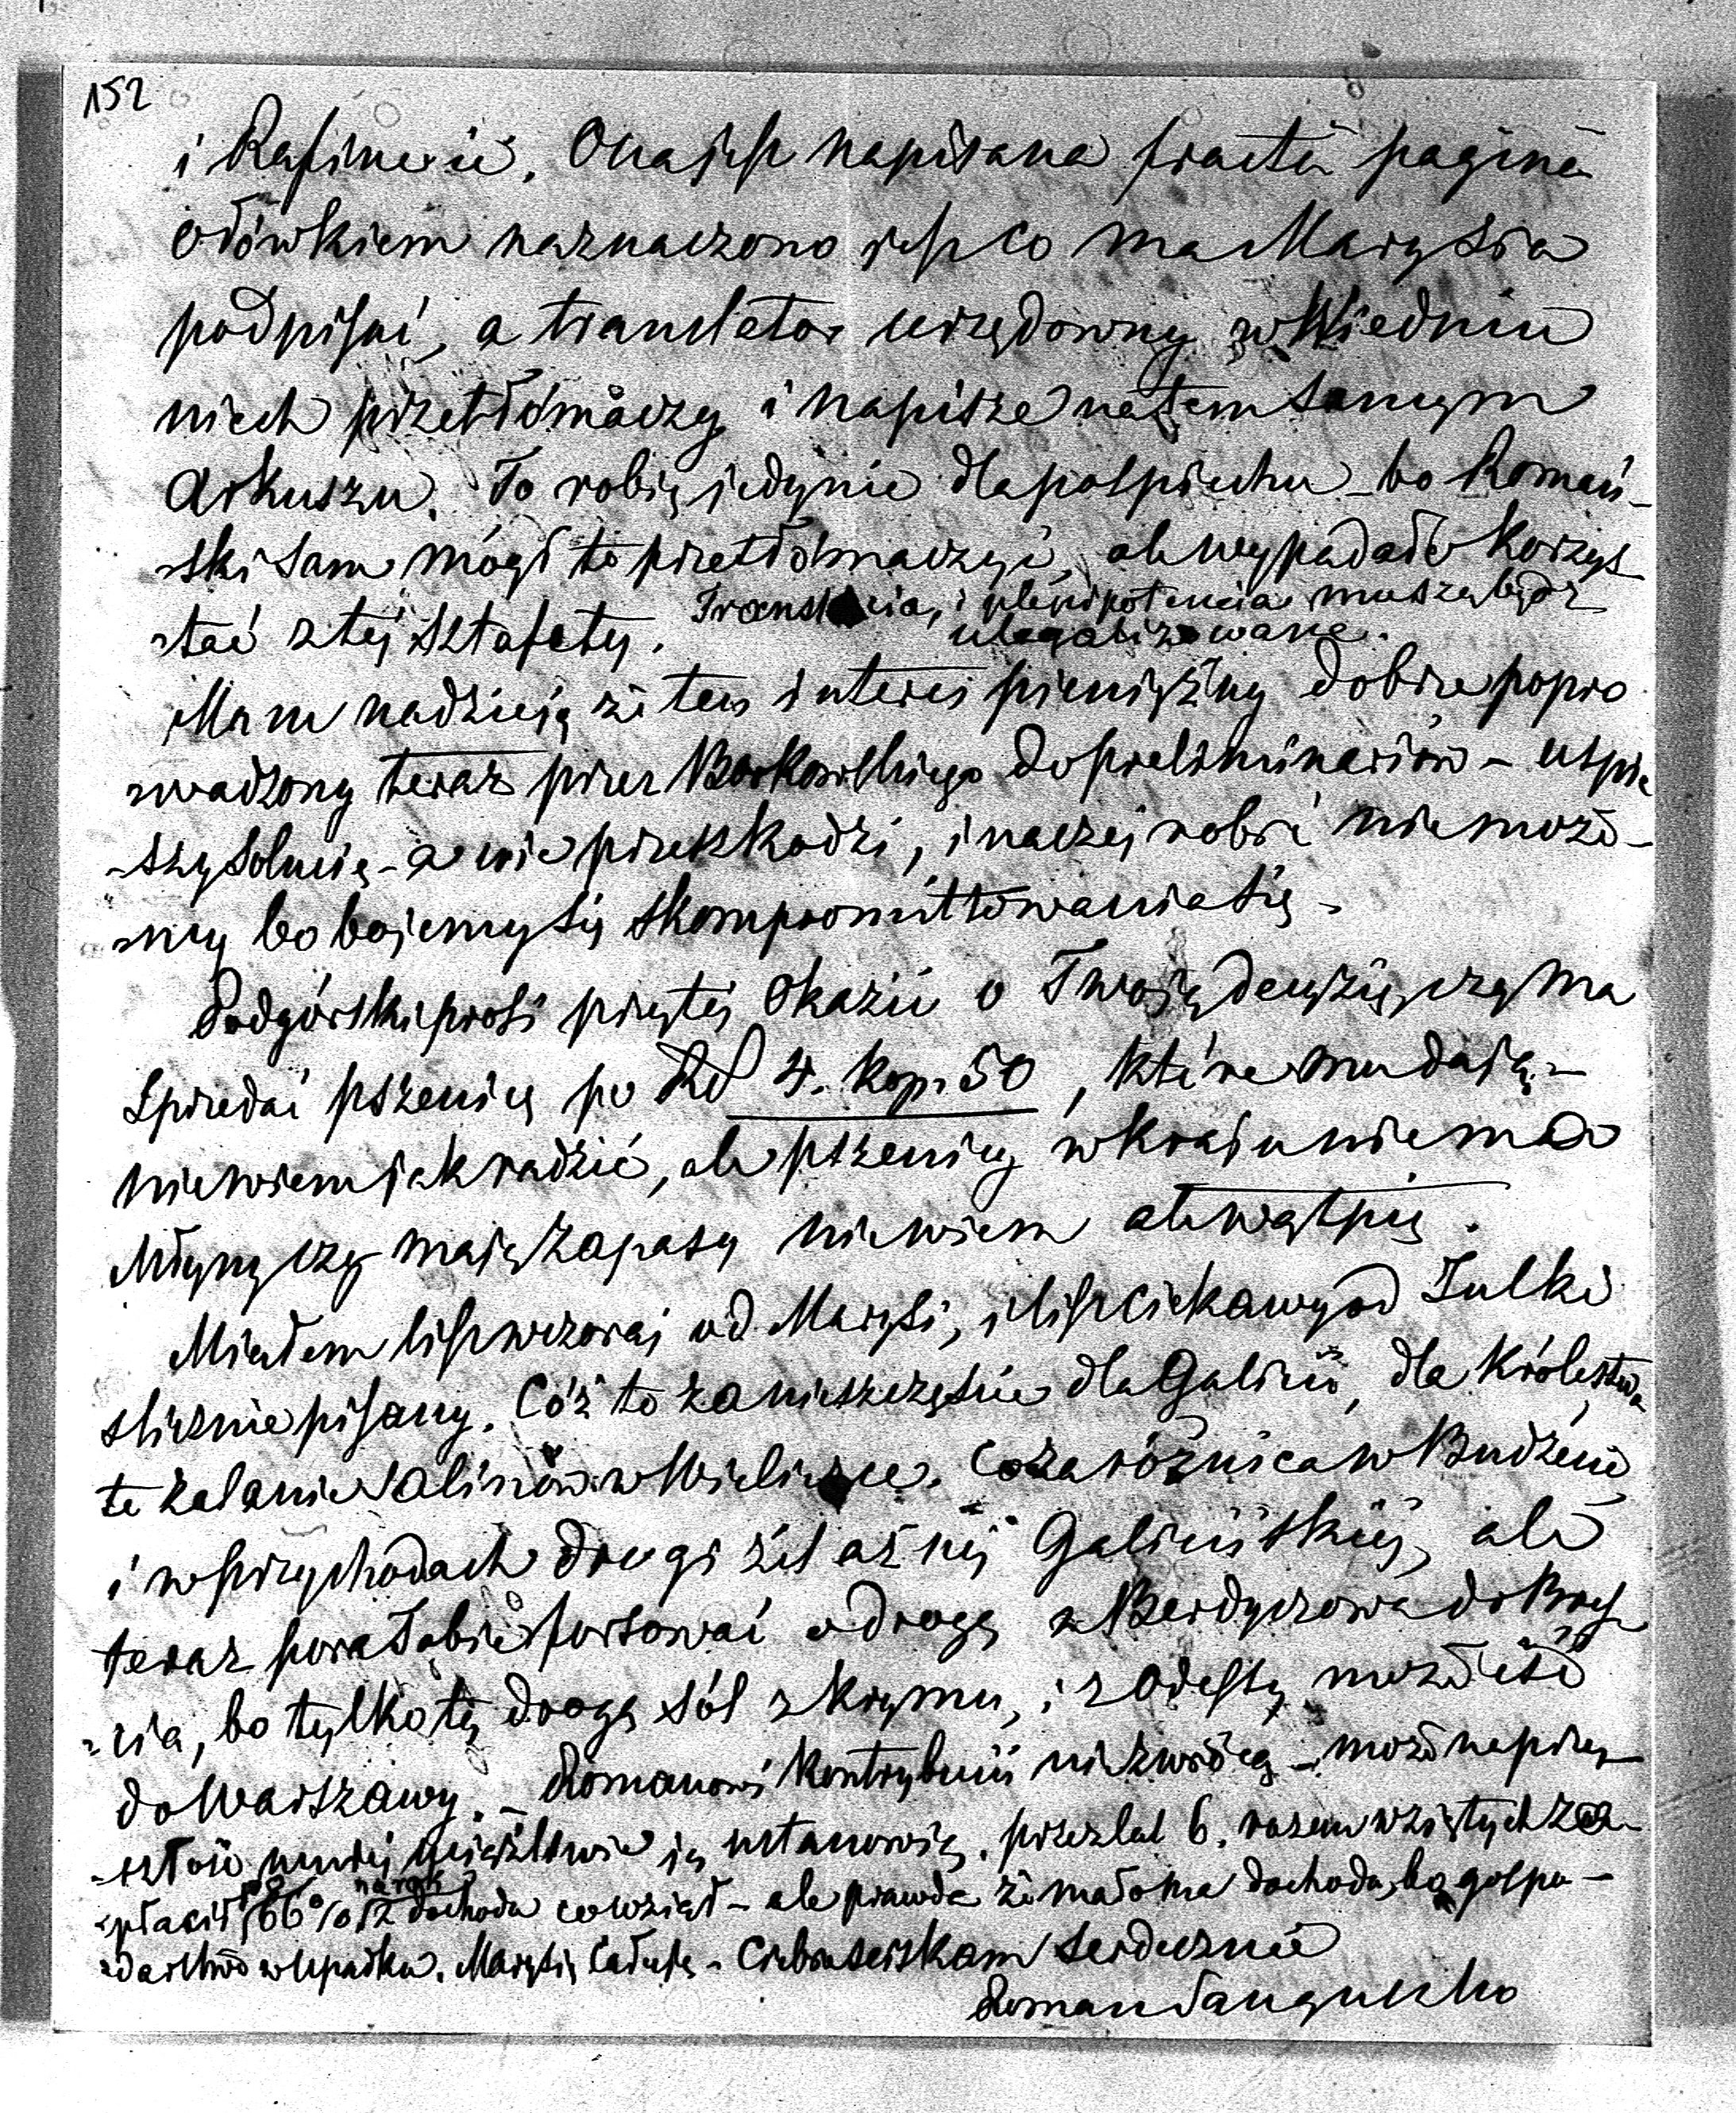 152
i Rafinerie. Ona jest napisana fracta pagina
ołówkiem naznaczono jest co ma Marysia
podpisać, a translator urzędowny w Wiedniu
niech przetłómaczy i napisze na tem samym
Arkuszu. To robię jedynie dla pośpiechu – bo Romań-
-ski sam mógł to przetłómaczyć, ale wypadało korzys-
-tać z tej sztafety. Translacia, i plenipotencia muszą bydź
ulegalizowane.
Mam nadzieję że ten interes pieniężny dobrze popro
-wadzony teraz przez Borkowskiego do preliminariów – uspie
-szy solucię – a nie przeszkodzi, inaczej robić nie może-
-my bo bojemy się skompromittowania się –
Podgórski prosi przy tej okazii o Twoją decyzię, czy ma
sprzedać pszenicę po Rs 4. kop. 50, które mu dają –
nie wiem jak radzić, ale pszenicy w kraju nie ma
Młyny czy mają zapasy nie wiem ale wątpię.
Miałem list wczoraj od Marysi, i list ciekawy od Julki
slicznie pisany. Cóż to za nieszczęście dla Galicii, dla Królestwa
te zalanie Salinów w Wieliczce. Co za róźnica w Budżecie
i w przychodach drogi żelaznej Galiciiskiej, ale
teraz pora Tobie forsować o drogę z Berdyczowa do Brześ
-cia, bo tylko tą drogą sól z Krymu, i z Odessy może iść
do Warszawy. – Romanowi kontrybucii nie zwrócą – może na przy-
-szłość mniej uciążliwie ją ustanowią. przez lat 6. razem wziętych za-
-płacił po 66% na rok z dochodu co wziął – ale prawda że mało ma dochodu, bo gospo-
-darstwo w upadku. Marysię całuję – Ciebie ściskam serdecznie
Roman Sanguszko